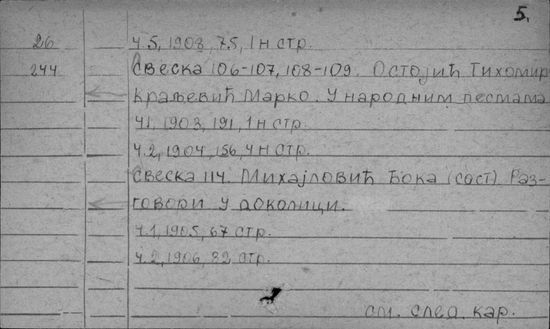 5.
26 Ч.5, 1908, 75, 1 н стр.
244 Свеска 106-107, 108-109. Остојић Тихомир
Краљевић Марко. У народним песмама
Ч1. 1903, 191, 1 н стр.
Ч.2, 1904, 156, 4 н стр.
Свеска 114. Михајловић Ђока (сост). Раз-
говори у доколици.
Ч.1, 1905, 67 стр.
Ч.2, 1906, 82 стр.
см. след. кар.